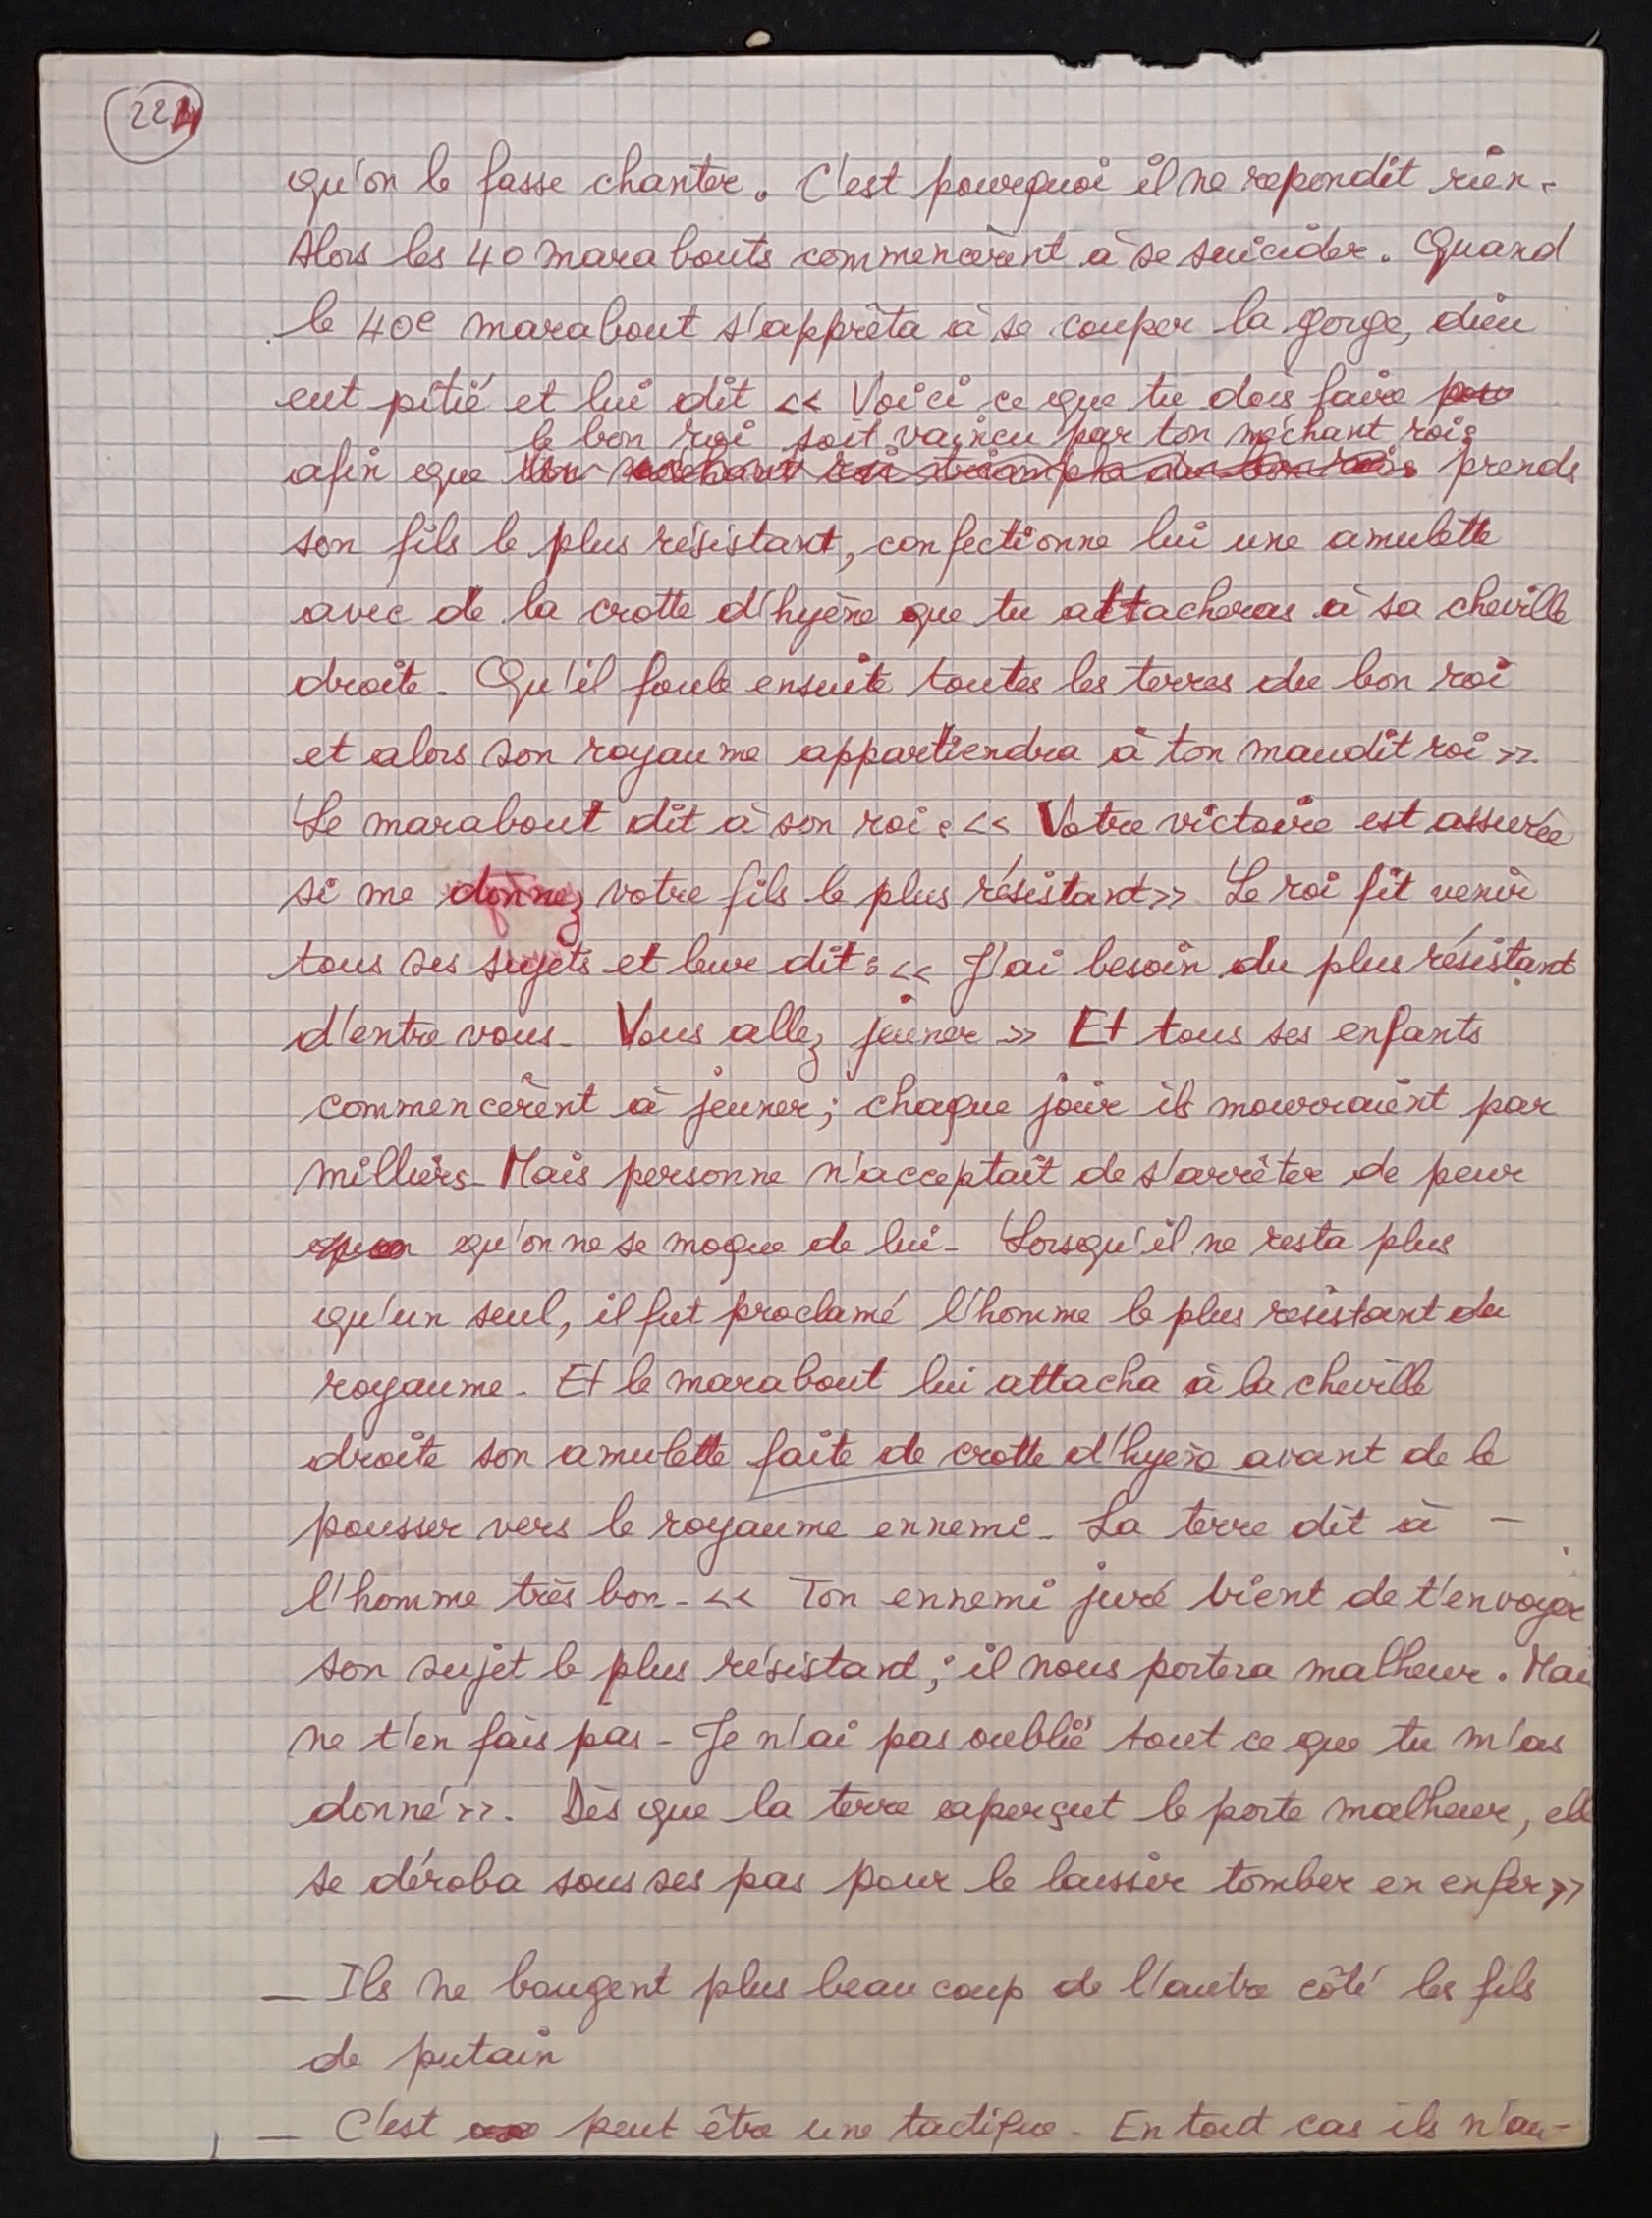 224
qu'on le fasse chanter. C'est pourquoi il ne repondit rien.
Alors les 40 marabouts commencèrent à se suicider. Quand
le 40e marabout s'apprêta à se couper la gorge, dieu
eut pitié et lui dit << Voici ce que tu dois faire pour
le bon roi soit vaincu par ton méchant roi:
afin que ton méchant roi triomphe du bon roi: prends
son fils le plus résistant, confectionne lui une amulette
avec de la crotte d'hyène que tu attacheras à sa cheville
droite. Qu'il foule ensuite toutes les terres du bon roi
et alors son royaume appartiendra à ton maudit roi >>.
Le marabout dit à son roi : << Votre victoire est assurée
si me donnez votre fils le plus résistant >> Le roi fit venir
tous ses sujets et leur dit : << J'ai besoin du plus résistant
d'entre vous. Vous allez jeuner >> Et tous ses enfants
commencèrent à jeuner ; chaque jour ils mourraient par
milliers. Mais personne n'acceptait de s'arrêter de peur
qu'on ne se moque de lui. Lorsqu'il ne resta plus
qu'un seul, il fut proclamé l'homme le plus resistant du
royaume. Et le marabout lui attacha à la cheville
droite son amulette faite de crotte d'hyène avant de le
pousser vers le royaume ennemi. La terre dit à —
l'homme très bon. << Ton ennemi juré vient de t'envoyer
son sujet le plus résistant ; il nous portera malheur. Mai
ne t'en fais pas - Je n'ai pas oublié tout ce que tu m'as
donné >>. Dès que la terre aperçut le porte malheur, ell
se déroba sous ses pas pour le laisser tomber en enfer >>
— Ils ne bougent plus beaucoup de l'autre côté les fils
de putain
— C'est peut être une tactique. En tout cas ils n'au-